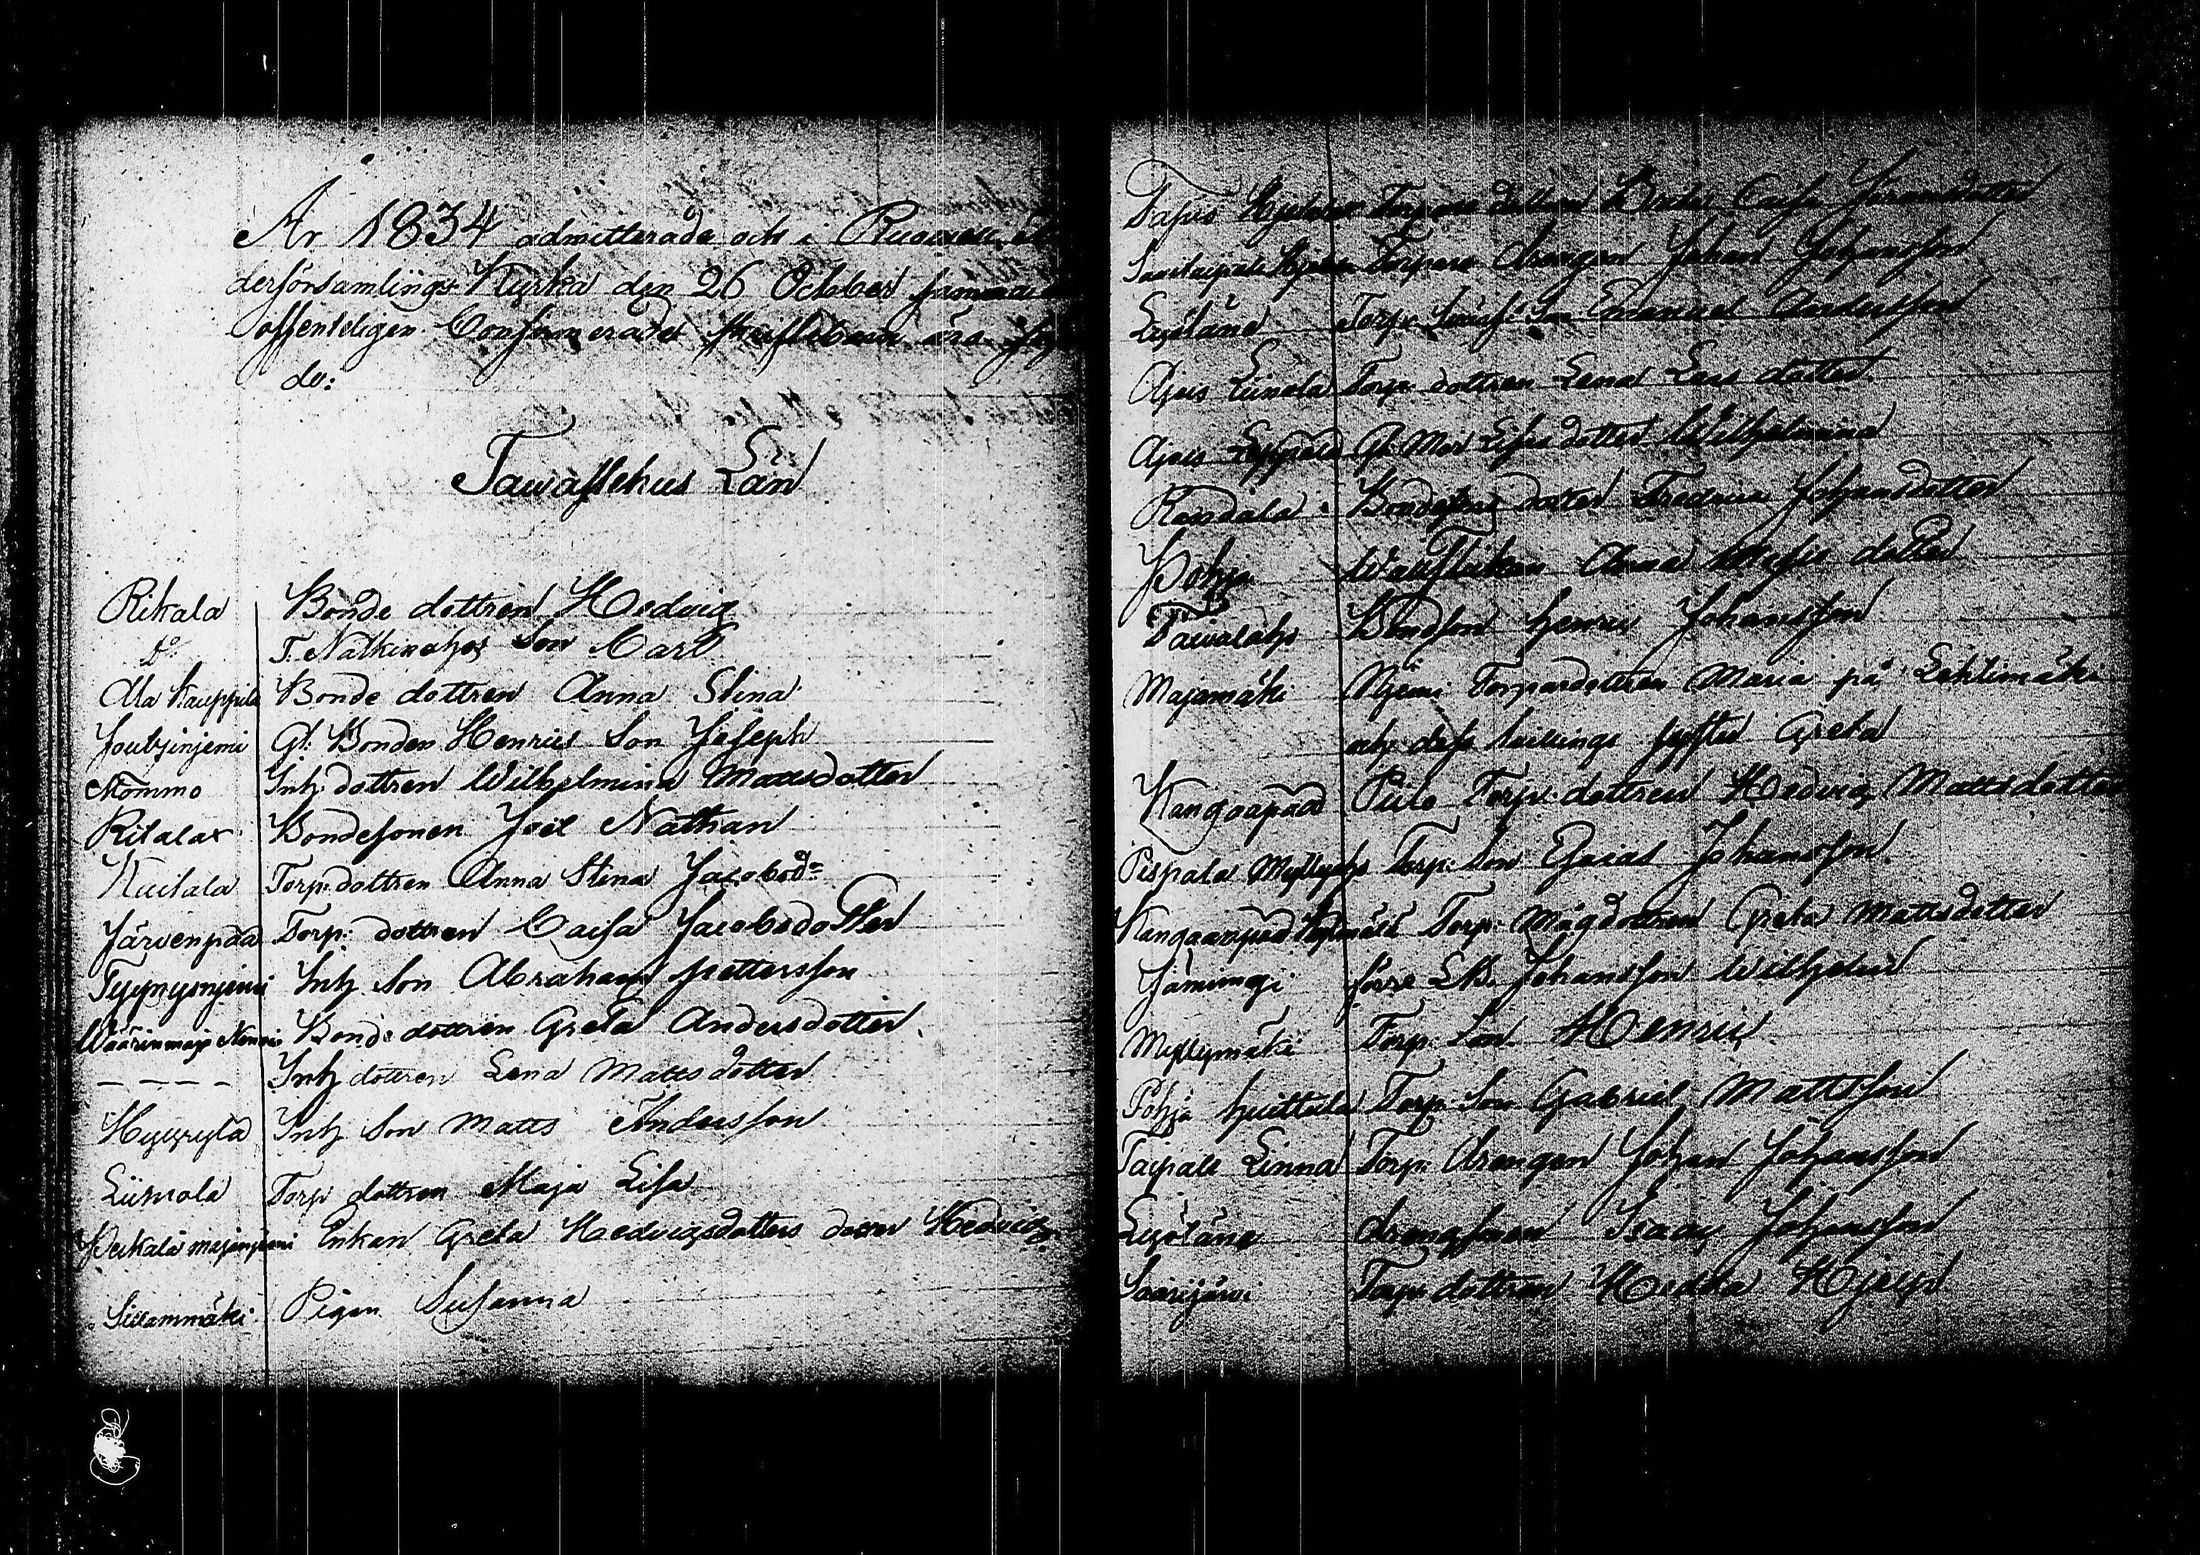 År 1834 admitterade och i Ruovesi
derförsamlings Kyrka den 26 October samma
offenteligen Confirmerade skriftebarn äro
de:
Tawastehus Län
Rikala Bonde dottren Hedwig
Do T. Natkinahos Son Carl
Ala Kauppila Bonde dottren Anna Stina
Joutzinjemi Gl. Bonden Henrics Son Joseph
Mommo Inh. dottren Wilhelmina Mattsdotter
Ritalar Bondesonen Joel Nathan
Kuitala Torp. dottren Anna Stina Jacobsdr
Järvenpää Torp: dottren Caisa Jacobsdotter
Inh Son Abraham Pettersson
Bond. dottren Greta Andersdotter.
– – – – Inh dottren Lena Mattsdotter
Hyyrylä Inh Son Matts Andersson
Liimola Torp dottren Maja Lisa
Enkan Greta Hedvigsdotters dotter Hedwig
Sillammäki Pigan Susanna
Torpare dottren Caisa
Torpare drengen Johan Johansson
Torp. Son Emanuel Andersson
Ajus Liinola Torp. dottren Lena Lars dotter
Ajus dotter Wilhelmina
Bonde dotter Fredrica Johansdotter
Pohja Anna dotter
Tawalahs Bondson Henric Johansson
Majamäki Njemi Torpardottren Maria på Lehtimäki
och dess Greta
Kangaapää Torp. dottren Hedwig Mattsdotter
Pispala Torp: Son Esaias Johansson
Torp: Mågdottren Greta Mattsdotter
Jäminngi Johansson Wilhelm
Myllymäki Torp. Son Henric
Pohja Huittula Torp. Son Gabriel Mattsson
Taipale Linna Torp: drengen Johan Johansson
Drengsonen Isaac Johansson
Saarijärvi Torp. dottren Hedda Hjelp